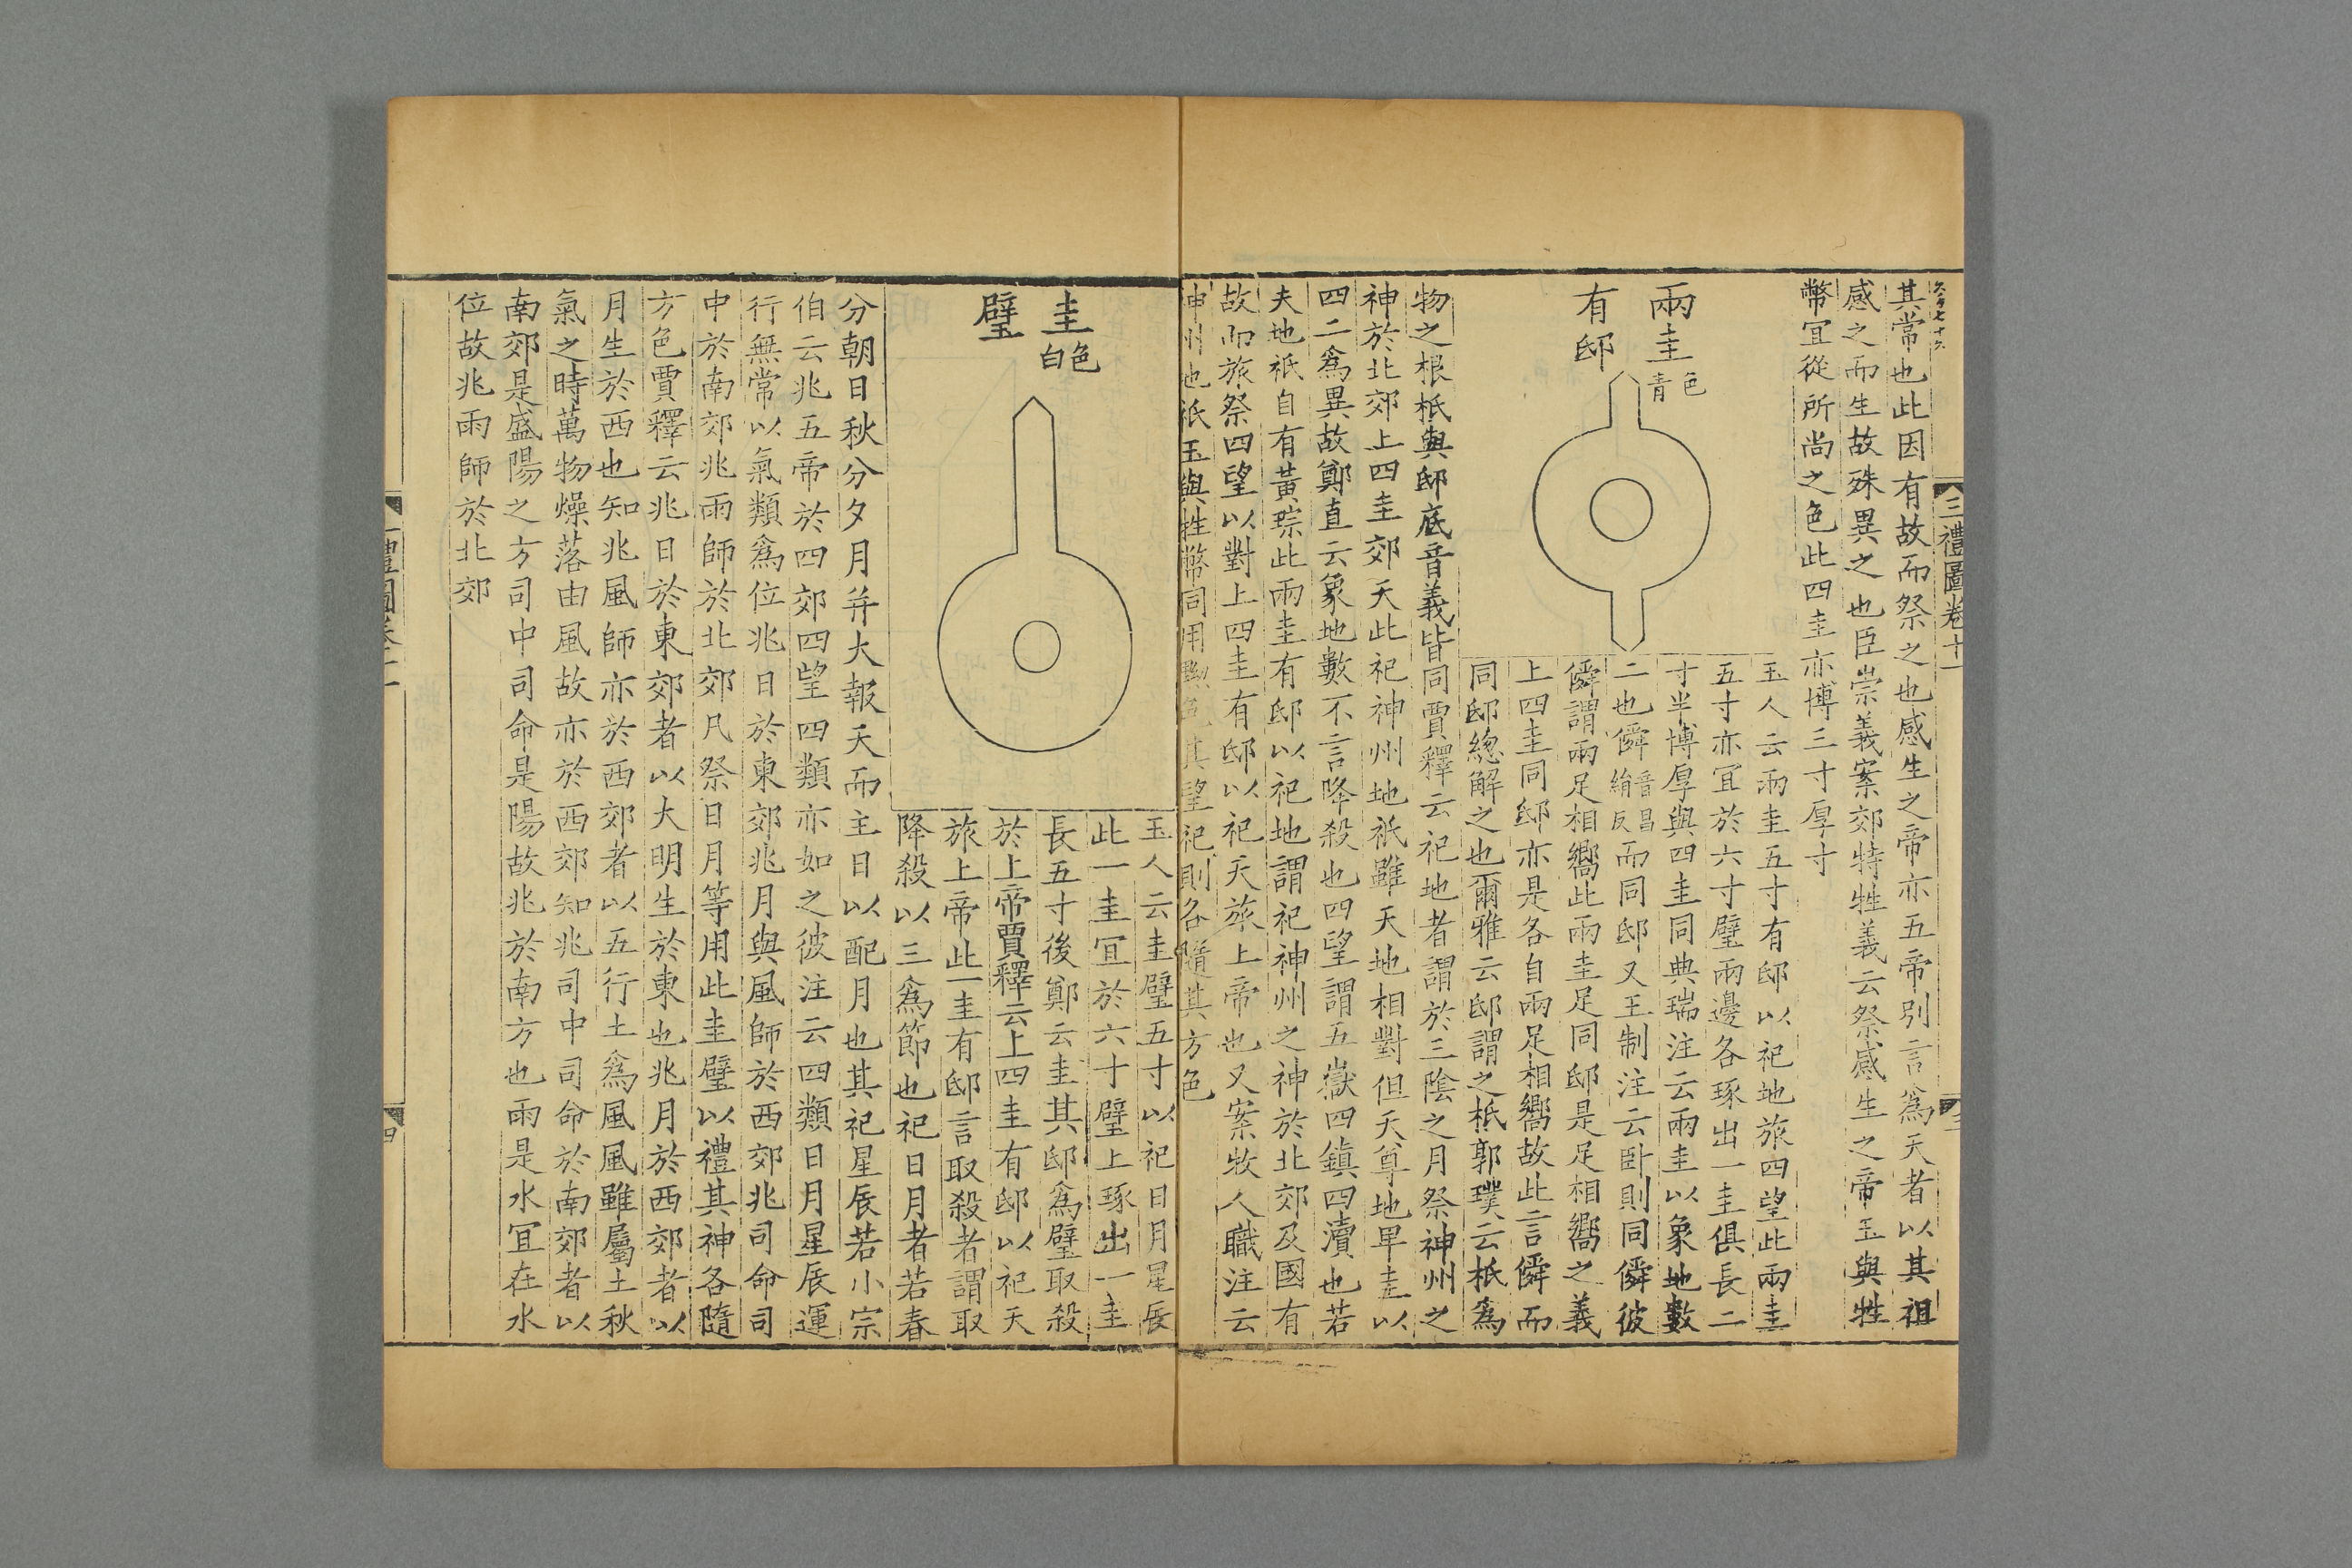 三禮圖卷十一
其常也此因有故而祭之也感生之帝亦五帝別言爲天者以其祖
感之而生故殊異之也臣崇義案郊特牲義云祭感生之帝玉與牲
幣宜從所尚之色此四圭亦博三寸厚寸
兩圭色青
有邸
玉人云兩圭五寸有邸以祀地旅四望此兩圭
五寸亦宜於六寸璧兩邊各琢出一圭俱長二
寸半博厚與四圭同典瑞注云兩圭以象地數
二也僢音昌絹反而同邸又王制注云卧則同僢彼
僢謂兩足相嚮此兩圭足同邸是足相嚮之義
上四圭同邸亦是各自兩足相嚮故此言僢而
同邸緫解之也爾雅云邸謂之柢郭璞云柢爲
物之根柢與邸底音義皆同賈釋云祀地者謂於三陰之月祭神州之
神於北郊上四圭郊天此祀神州地祇雖天地相對但天尊地卑圭以
四二爲異故鄭直云象地數不言降殺也四望謂五嶽四鎮四瀆也若
夫地祇自有黃琮此兩圭有邸以祀地謂祀神州之神於北郊及國有
故而旅祭四望以對上四圭有邸以祀天旅上帝也又案牧人職注云
神州也祇玉與牲幣同用黝色其望祀則各隨其方色
圭色白
璧
玉人云圭璧五寸以祀日月星辰
此一圭宜於六寸璧上琢出一圭
長五寸後鄭云圭其邸爲璧取殺
於上帝賈釋云上四圭有邸以祀天
旅上帝此一圭有邸言取殺者謂取
降殺以三爲節也祀日月者若春
分朝日秋分夕月并大報天而主日以配月也其祀星辰若小宗
伯云兆五帝於四郊四望四類亦如之彼注云四類日月星辰運
行無常以氣類爲位兆日於東郊兆月與風師於西郊兆司命司
中於南郊兆雨師於北郊凡祭日月等用此圭璧以禮其神各隨
方色賈釋云兆日於東郊者以大明生於東也兆月於西郊者以
月生於西也知兆風師亦於西郊者以五行土爲風風雖屬土秋
氣之時萬物燥落由風故亦於西郊知兆司中司命於南郊者以
南郊是盛陽之方司中司命是陽故兆於南方也雨是水宜在水
位故兆雨師於北郊
四